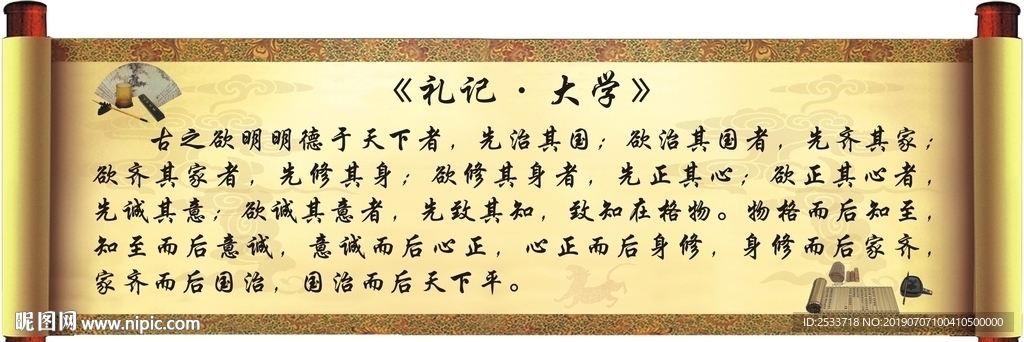 《礼记·大学》
古之欲明明德于天下者，先治其国；欲治其国者，先齐其家；
欲齐其家者，先修其身；欲修其身者，先正其心；欲正其心者，
先诚其意；欲诚其意者，先致其知，致知在格物。物格而后知至，
知至而后意诚，意诚而后心正，心正而后身修，身修而后家齐，
家齐而后国治，国治而后天下平。
昵图网 www.nipic.com
ID:2533718 NO:20190707100410500000